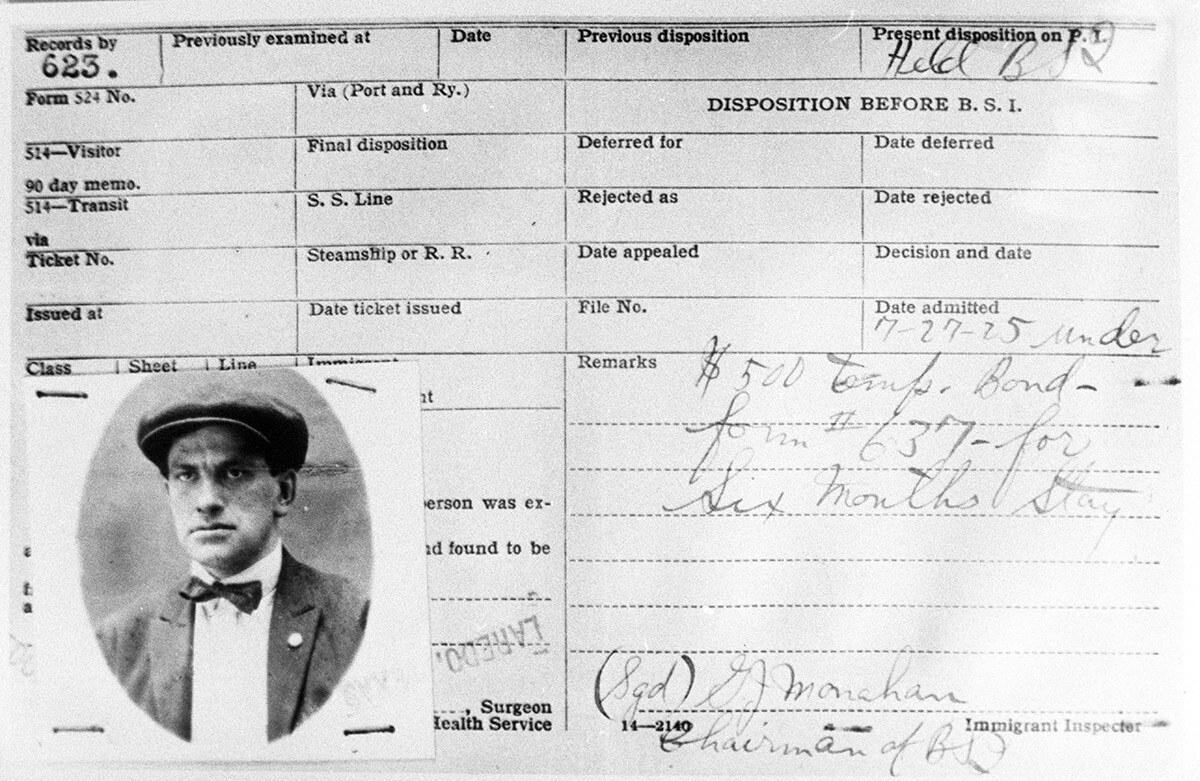 Records by
623.
Previously examined at
Date
Previous disposition
Present disposition on P. I.
Held BSI
Form 524 No.
Via (Port and Ry.)
DISPOSITION BEFORE B. S. I.
514—Visitor
90 day memo.
Final disposition
Deferred for
Date deferred
514—Transit
via
S. S. Line
Rejected as
Date rejected
Ticket No.
Steamship or R. R.
Date appealed
Decision and date
Issued at
Date ticket issued
File No.
Date admitted
7-27-25 under
Class
Sheet
Line
Remarks
$500 Temp. Bond-
form # 637-for
Six Months Stay
erson was ex-
nd found to be
LAREDO,
, Surgeon
Health Service
(Sgd) GJ Monahan
14—2140
Immigrant Inspector
Chairman of BSI